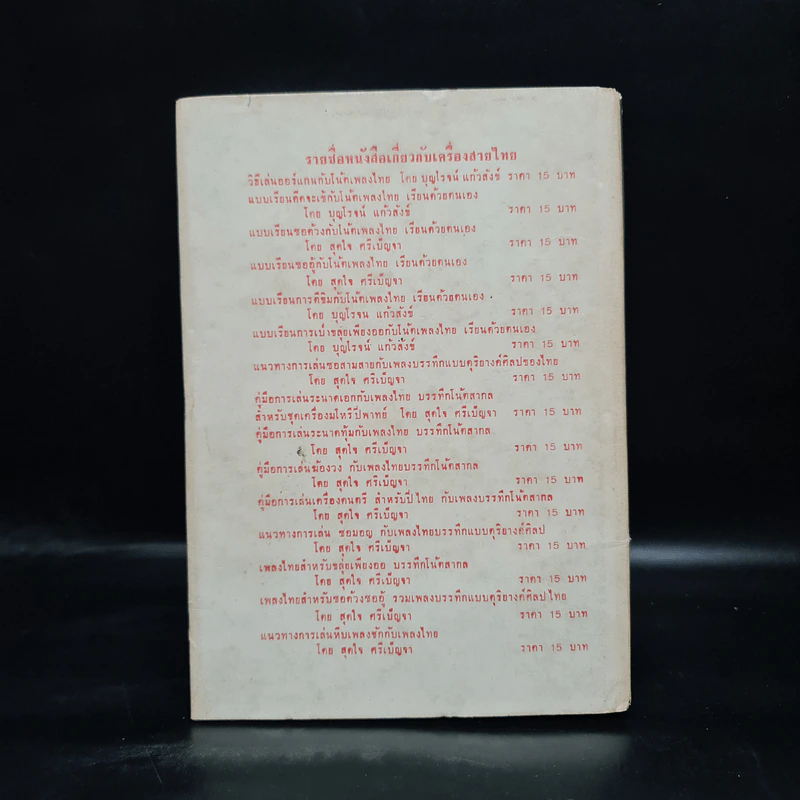 รายชื่อหนังสือเกี่ยวกับเครื่องสายไทย
วิธีเล่นออร์แกนกับโน้ตเพลงไทย โดย บุญโรจน์ แก้วสังข์ ราคา 15 บาท
แบบเรียนดีดจะเข้กับโน้ตเพลงไทย เรียนด้วยตนเอง
โดย บุญโรจน์ แก้วสังข์ ราคา 15 บาท
แบบเรียนซอด้วงกับโน้ตเพลงไทย เรียนด้วยตนเอง
โดย สุดใจ ศรีเบ็ญจา ราคา 15 บาท
แบบเรียนซออู้กับโน้ตเพลงไทย เรียนด้วยตนเอง
โดย สุดใจ ศรีเบ็ญจา ราคา 15 บาท
แบบเรียนการตีขิมกับโน้ตเพลงไทย เรียนด้วยตนเอง
โดย บุญโรจน แก้วสังข์ ราคา 15 บาท
แบบเรียนการเป่าขลุ่ยเพียงออกับโน้ตเพลงไทย เรียนด้วยตนเอง
โดย บุญโรจน์ แก้วสังข์ ราคา 15 บาท
แนวทางการเล่นซอสามสายกับเพลงบรรทึกแบบดุริยางค์ศิลปของไทย
โดย สุดใจ ศรีเบ็ญจา ราคา 15 บาท
คู่มือการเล่นระนาดเอกกับเพลงไทย บรรทึกโน้ตสากล
สำหรับชุดเครื่องมโหรีปี่พาทย์ โดย สุดใจ ศรีเบ็ญจา ราคา 15 บาท
คู่มือการเล่นระนาดทุ้มกับเพลงไทย บรรทึกโน้ตสากล
โดย สุดใจ ศรีเบ็ญจา ราคา 15 บาท
คู่มือการเล่นฆ้องวง กับเพลงไทยบรรทึกโน้ตสากล
โดย สุดใจ ศรีเบ็ญจา ราคา 15 บาท
คู่มือการเล่นเครื่องดนตรี สำหรับปี่ไทย กับเพลงบรรทึกโน้ตสากล
โดย สุดใจ ศรีเบ็ญจา ราคา 15 บาท
แนวทางการเล่น ซอมอญ กับเพลงไทยบรรทึกแบบดุริยางค์ศิลป
โดย สุดใจ ศรีเบ็ญจา ราคา 15 บาท
เพลงไทยสำหรับขลุ่ยเพียงออ บรรทึกโน้ตสากล
โดย สุดใจ ศรีเบ็ญจา ราคา 15 บาท
เพลงไทยสำหรับซอด้วงซออู้ รวมเพลงบรรทึกแบบดุริยางค์ศิลปไทย
โดย สุดใจ ศรีเบ็ญจา ราคา 15 บาท
แนวทางการเล่นหีบเพลงชักกับเพลงไทย
โดย สุดใจ ศรีเบ็ญจา ราคา 15 บาท